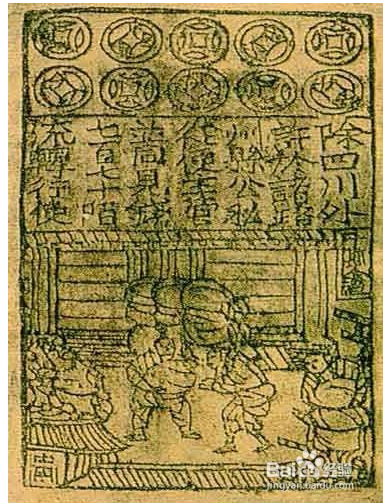 除四川外
許於諸路
州縣公私
從便主管
並同見錢
七百七十陌
流轉行使
Baidu经验
jingyan.baidu.com